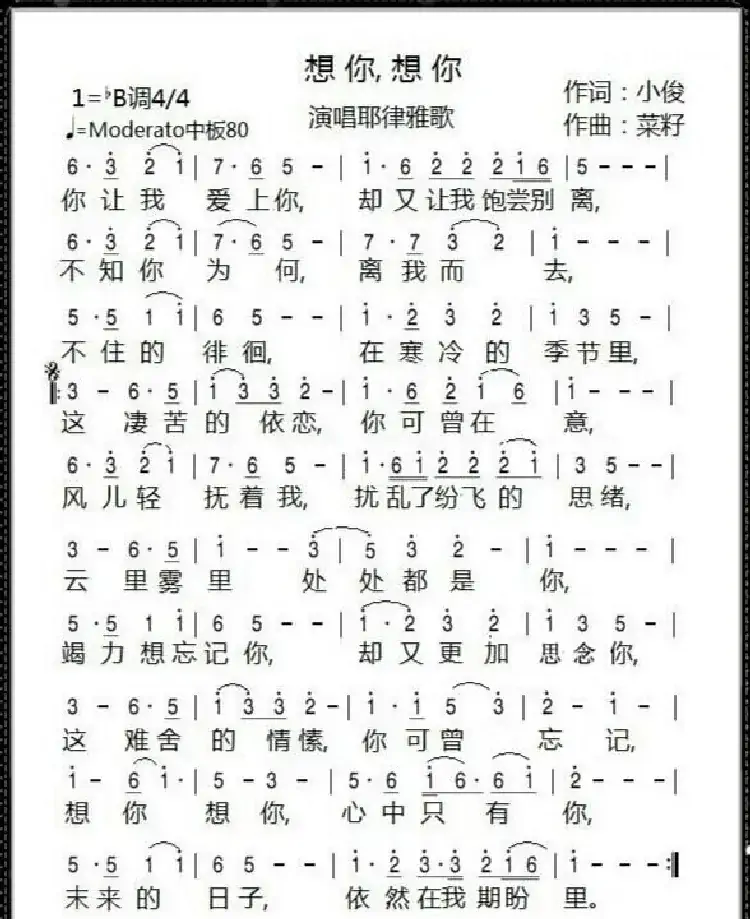 想你,想你
1=♭B调4/4
作词：小俊
♩=Moderato中板80
演唱耶律雅歌
作曲：菜籽
6· 3 2 1 | 7· 6 5 - | 1· 6 2 2 2 1 6 | 5 - - - |
你让我 爱上你, 却又让我饱尝别离,
6· 3 2 1 | 7· 6 5 - | 7· 7 3 2 | 1 - - - |
不知你 为何, 离我而去,
5· 5 1 1 | 6 5 - - | 1· 2 3 2 | 1 3 5 - |
不住的徘徊, 在寒冷的季节里,
𝄋
‖: 3 - 6· 5 | 1 3 3 2 - | 1· 6 2 1 6 | 1 - - - |
这凄苦的依恋, 你可曾在意,
6· 3 2 1 | 7· 6 5 - | 1· 6 1 2 2 2 1 | 3 5 - - |
风儿轻抚着我, 扰乱了纷飞的思绪,
3 - 6· 5 | 1 - - 3 | 5 3 2 - | 1 - - - |
云里雾里 处处都是你,
5· 5 1 1 | 6 5 - - | 1· 2 3 2 | 1 3 5 - |
竭力想忘记你, 却又更加思念你,
3 - 6· 5 | 1 3 3 2 - | 1· 1 5 3 | 2 - 1 - |
这难舍的情愫, 你可曾忘记,
1 - 6 1· | 5 - 3 - | 5· 6 1 6· 6 1 | 2 - - - |
想你想你, 心中只有你,
5· 5 1 1 | 6 5 - - | 1· 2 3· 3 2 1 6 | 1 - - - :‖
未来的日子, 依然在我期盼里。